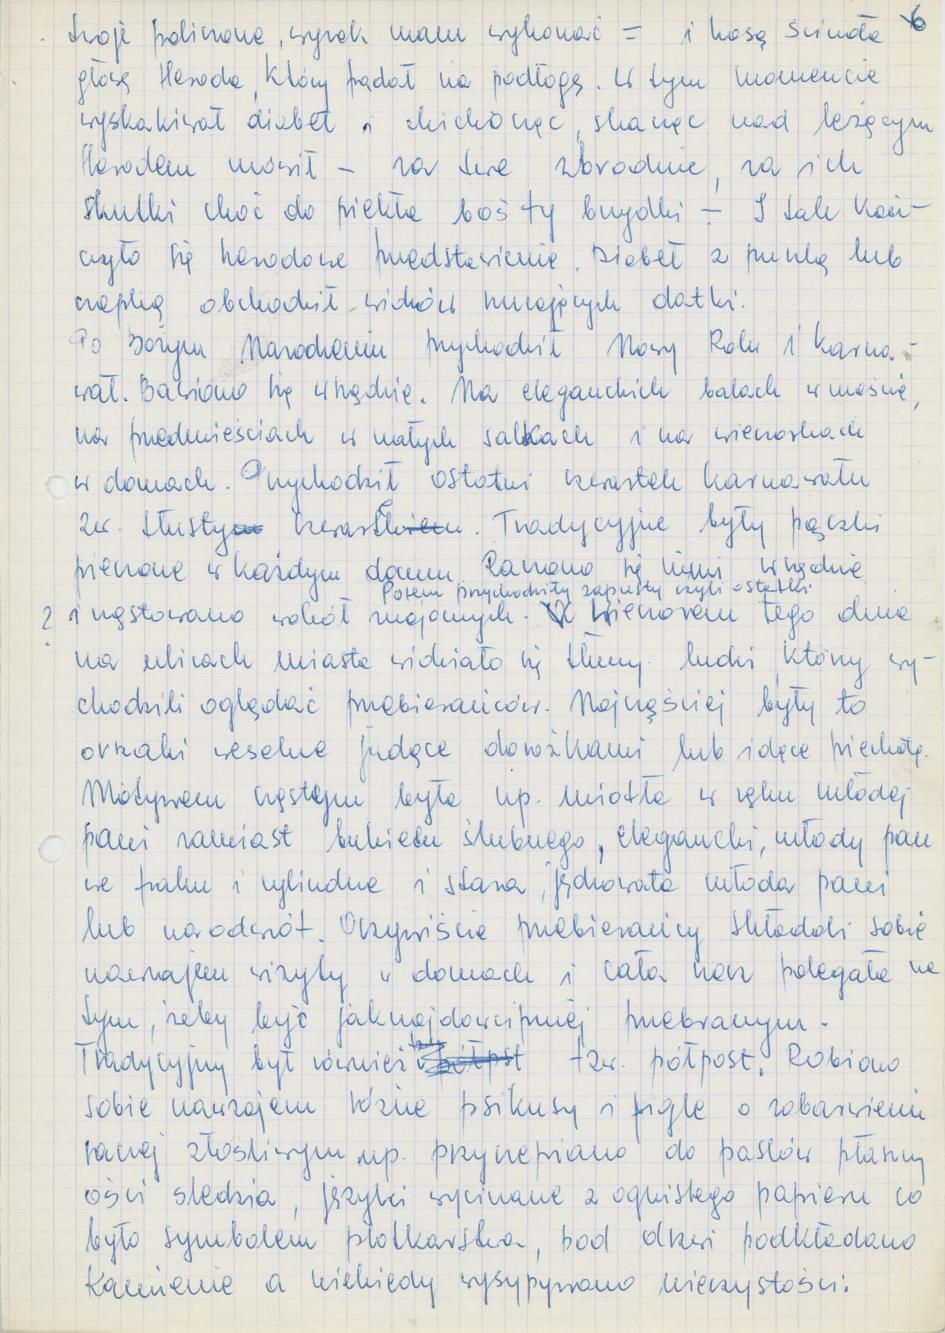 6
twoje policzone, wyrok mam wykonać = i kosą ścinała
głowę Heroda, który padał na podłogę. W tym momencie
wyskakiwał diabeł i chichocąc, skacąc nad leżącym
Herodem mówił – za twe zbrodnie, za ich
skutki choć do piekła boś ty brzydki – I tak koń-
czyło się herodowe przedstawienie. Diabeł z puszką lub
czapką obchodził widzów rzucających datki.
Po Bożym Narodzeniu przychodził Nowy Rok i karna-
wał. Bawiono się wszędzie. Na eleganckich balach w mieście,
na przedmieściach w małych salkach i na wieczorkach
w domach. Przychodził ostatni czwartek karnawału
zw. tłusty czwartek. Tradycyjne były pączki
pieczone w każdym domu. Raczono się nimi wszędzie
Potem przychodziły zapusty czyli ostatki
? i częstowano wokół znajomych. Wieczorem tego dnia
na ulicach miasta widziało się tłumy ludzi, którzy wy-
chodzili oglądać przebierańców. Najczęściej były to
orszaki weselne jadące dorożkami lub idące piechotą.
Motywem częstym była np. miotła w ręku młodej
pani zamiast bukietu ślubnego, elegancki, młody pan
we fraku i cylindrze i stara, jędzowata młoda pani
lub na odwrót. Oczywiście przebierańcy składali sobie
nawzajem wizyty w domach i cała rzecz polegała na
tym, żeby być jaknajdowcipniej przebranym.
Tradycyjny był również tzw. półpost. Robiono
sobie nawzajem różne psikusy i figle o zabarwieniu
raczej złośliwym np. przyczepiano do pasków płaszczy
ości śledzia, języki wycinane z ognistego papieru co
było symbolem plotkarstwa, pod drzwi podkładano
kamienie a niekiedy wysypywano nieczystości.